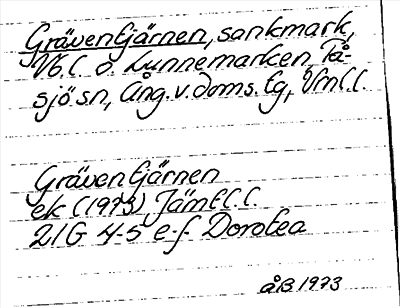 Gräventjärnen, sankmark,
Vb.l. o. Lunnemarken, Tå-
sjö sn, Ång. v. doms. tg, Vrnl. l.
Gräventjärnen
ek (1973) Jämtl. l.
21G 4-5 e-f Dorotea
åB 1973